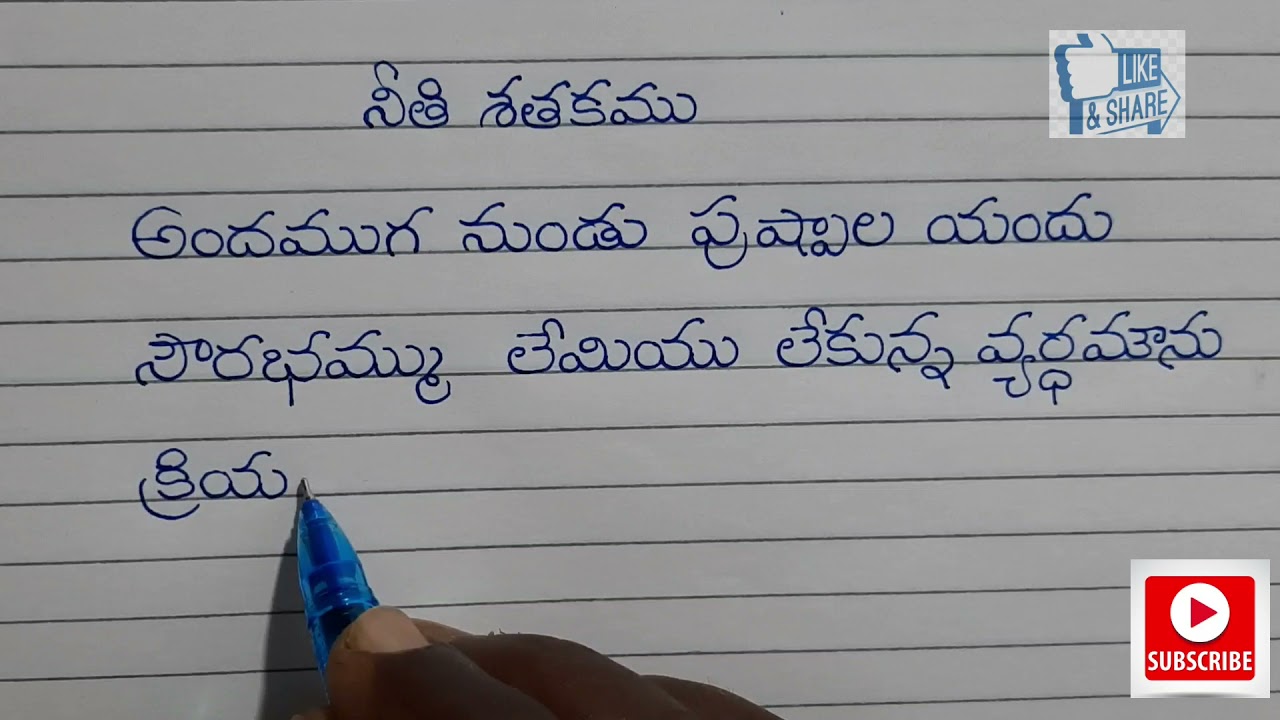 నీతి శతకము
LIKE
& SHARE
అందముగ నుండు పుష్పాల యందు
సౌరభమ్ము లేమియు లేకున్న వ్యర్థమౌను
క్రియ
SUBSCRIBE